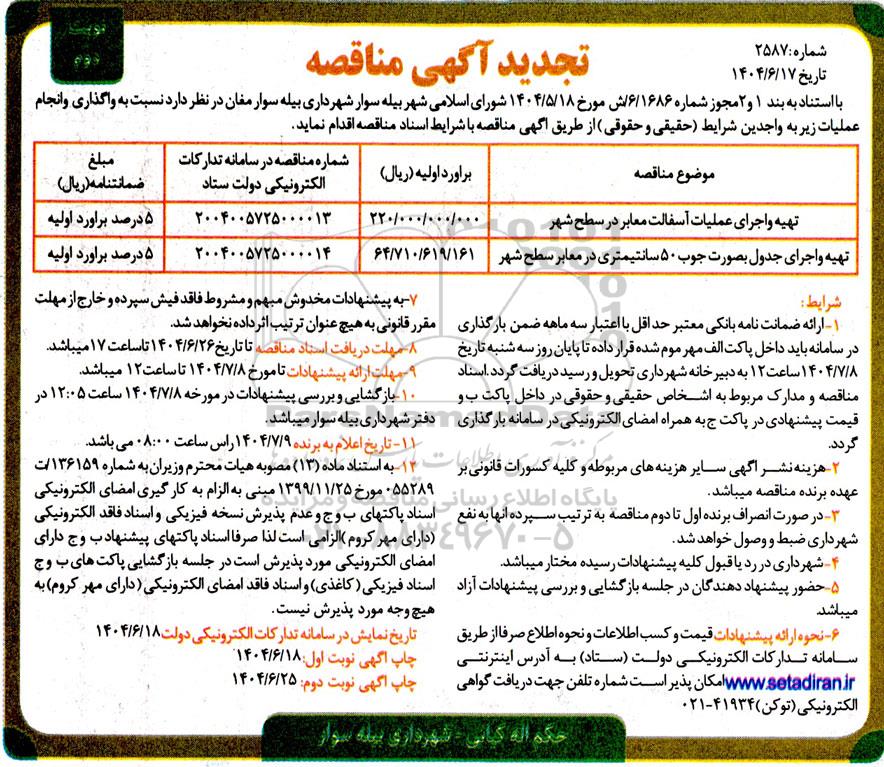 نوبت
دوم
تجدید آگهی مناقصه
شماره: ۲۵۸۷
تاریخ ۱۴۰۴/۶/۱۷
با استناد به بند ۱ و ۲ مجوز شماره ۶/۱۶۸۶/ش مورخ ۱۴۰۴/۵/۱۸ شورای اسلامی شهر بیله سوار شهرداری بیله سوار مغان در نظر دارد نسبت به واگذاری وانجام
عملیات زیر به واجدین شرایط (حقیقی و حقوقی) از طریق اگهی مناقصه با شرایط اسناد مناقصه اقدام نماید.
موضوع مناقصه
براورد اولیه (ریال)
شماره مناقصه در سامانه تدارکات
الکترونیکی دولت ستاد
مبلغ
ضمانتنامه(ریال)
تهیه واجرای عملیات آسفالت معابر در سطح شهر
۲۲۰/۰۰۰/۰۰۰/۰۰۰
۲۰۰۴۰۰۵۷۲۵۰۰۰۰۱۳
۵ درصد براورد اولیه
تهیه واجرای جدول بصورت جوب ۵۰ سانتیمتری در معابر سطح شهر
۶۴/۷۱۰/۶۱۹/۱۶۱
۲۰۰۴۰۰۵۷۲۵۰۰۰۰۱۴
۵ درصد براورد اولیه
شرایط:
۱-ارائه ضمانت نامه بانکی معتبر حداقل با اعتبار سه ماهه ضمن بارگذاری
در سامانه باید داخل پاکت الف مهر موم شده قرار داده تا پایان روز سه شنبه تاریخ
۱۴۰۴/۷/۸ ساعت ۱۲ به دبیرخانه شهرداری تحویل و رسید دریافت گردد. اسناد
مناقصه و مدارک مربوط به اشخاص حقیقی و حقوقی در داخل پاکت ب و
قیمت پیشنهادی در پاکت ج به همراه امضای الکترونیکی در سامانه بارگذاری
گردد.
۲-هزینه نشر اگهی سایر هزینه های مربوطه و کلیه کسورات قانونی بر
عهده برنده مناقصه میباشد.
۳-در صورت انصراف برنده اول تا دوم مناقصه به ترتیب سپرده انها به نفع
شهرداری ضبط و وصول خواهد شد.
۴-شهرداری در رد یا قبول کلیه پیشنهادات رسیده مختار میباشد.
۵-حضور پیشنهاد دهندگان در جلسه بازگشایی و بررسی پیشنهادات آزاد
میباشد.
۶-نحوه ارائه پیشنهادات قیمت و کسب اطلاعات و نحوه اطلاع صرفا از طریق
سامانه تدارکات الکترونیکی دولت (ستاد) به آدرس اینترنتی
www.setadiran.ir امکان پذیر است شماره تلفن جهت دریافت گواهی
الکترونیکی (توکن) ۴۱۹۳۴-۰۲۱
۷-به پیشنهادات مخدوش مبهم و مشروط فاقد فیش سپرده و خارج از مهلت
مقرر قانونی به هیچ عنوان ترتیب اثر داده نخواهد شد.
۸-مهلت دریافت اسناد مناقصه تا تاریخ ۱۴۰۴/۶/۲۶ تا ساعت ۱۷ میباشد.
۹-مهلت ارائه پیشنهادات تا مورخ ۱۴۰۴/۷/۸ تا ساعت ۱۲ میباشد.
۱۰-بازگشایی و بررسی پیشنهادات در مورخه ۱۴۰۴/۷/۸ ساعت ۱۲:۰۵ در
دفتر شهرداری بیله سوار میباشد.
۱۱- تاریخ اعلام به برنده ۱۴۰۴/۷/۹ راس ساعت ۰۸:۰۰ می باشد.
۱۲- به استناد ماده (۱۳) مصوبه هیات محترم وزیران به شماره ۱۳۶۱۵۹/ت
۰۵۵۲۸۹ مورخ ۱۳۹۹/۱۱/۲۵ مبنی به الزام به کار گیری امضای الکترونیکی
اسناد پاکتهای ب و ج و عدم پذیرش نسخه فیزیکی و اسناد فاقد الکترونیکی
(دارای مهر کروم) الزامی است لذا صرفا اسناد پاکتهای پیشنهاد ب و ج دارای
امضای الکترونیکی مورد پذیرش است در جلسه بازگشایی پاکت های ب و ج
اسناد فیزیکی (کاغذی) و اسناد فاقد امضای الکترونیکی (دارای مهر کروم) به
هیچ وجه مورد پذیرش نیست.
تاریخ نمایش در سامانه تدارکات الکترونیکی دولت ۱۴۰۴/۶/۱۸
چاپ اگهی نوبت اول: ۱۴۰۴/۶/۱۸
چاپ اگهی نوبت دوم: ۱۴۰۴/۶/۲۵
حکم اله کیانی - شهرداری بیله سوار
ParsNamadData
پایگاه اطلاع رسانی مناقصه و مزایده